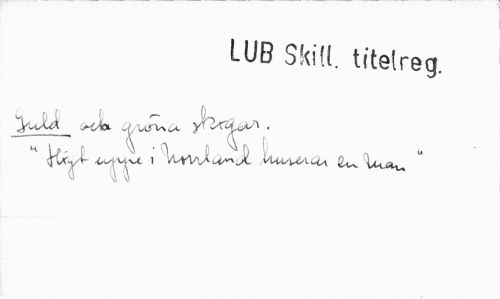 LUB Skill. titelreg.
Guld och gröna skogar.
"Högt uppe i Norrland huserar en man"